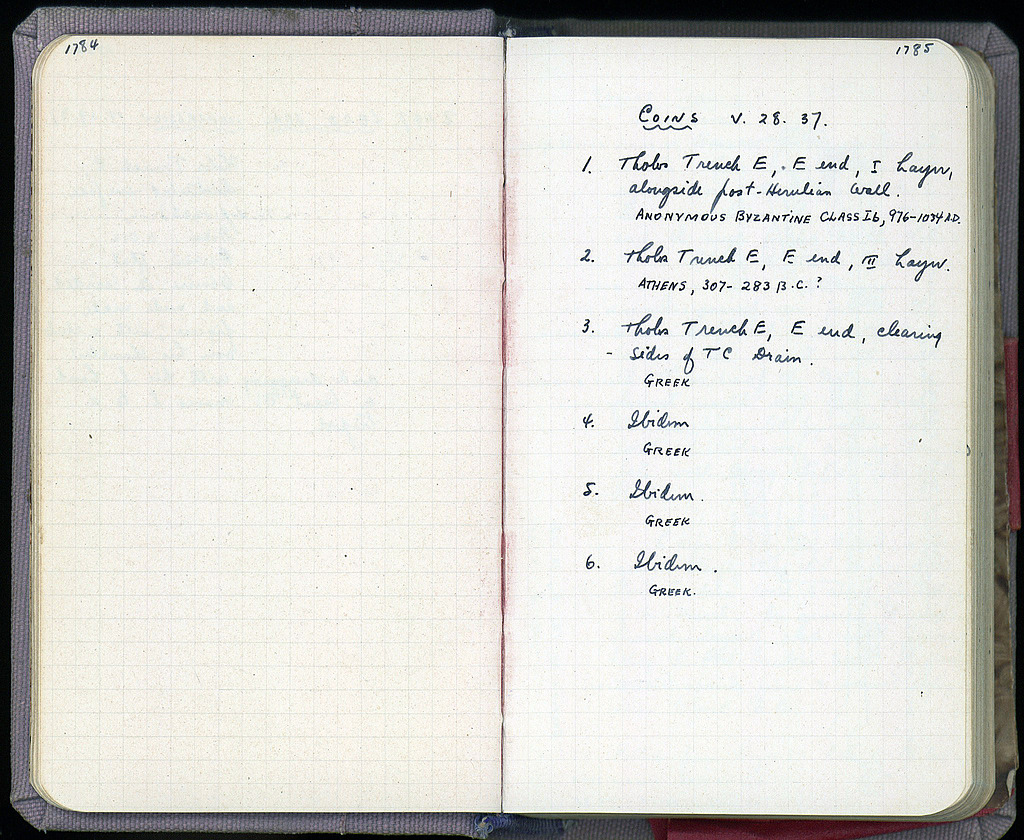 1784
1785
COINS V. 28. 37.
1. Tholos Trench E, E end, I Layer,
alongside post-Herulian Wall.
ANONYMOUS BYZANTINE CLASS Ib, 976-1034 AD.
2. Tholos Trench E, E end, II Layer.
ATHENS, 307-283 B.C.?
3. Tholos Trench E, E end, clearing
- sides of TC Drain.
GREEK
4. Ibidem
GREEK
5. Ibidem.
GREEK
6. Ibidem.
GREEK.